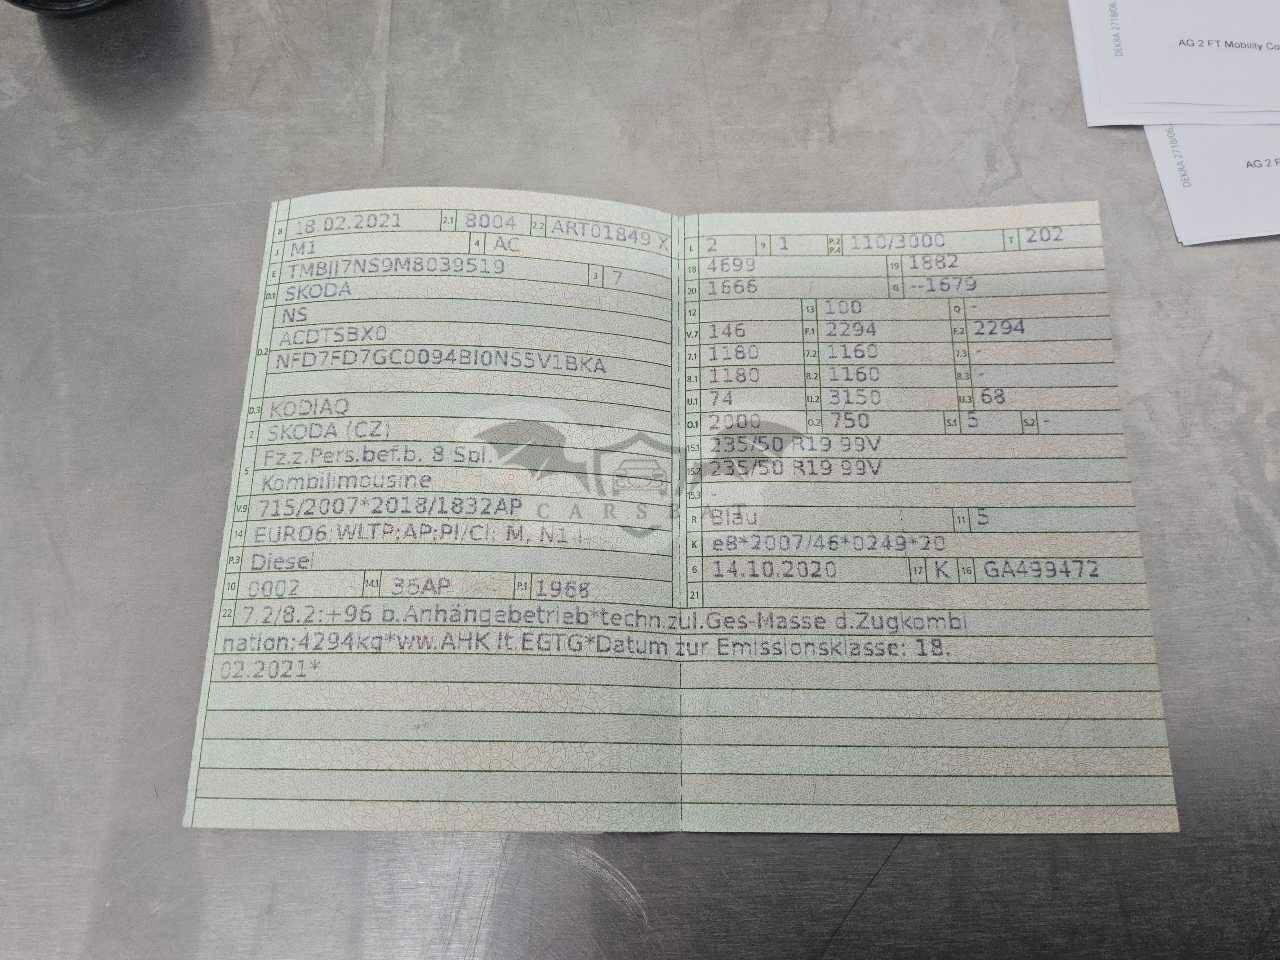 DEKRA 2718/06
AG 2 FT Mobility Co
DEKRA 2718/06
AG 2 F
B 18.02.2021 2.1 8004 2.2 ART01849 X
J M1 4 AC
E 3 7
D.1 SKODA
NS
D.2 ACDTSBX0
NFD7FD7GC0094BI0NS5V1BKA
D.3 KODIAQ
2 SKODA (CZ)
5 Fz.z.Pers.bef.b. 8 Spl.
Kombilimousine
V.9 715/2007*2018/1832AP
14 EURO6;WLTP;AP;PI/CI; M, N1 I
P.3 Diesel
10 0002 14.1 36AP P.1 1968
L 2 9 1 P.2 P.4 110/3000 T 202
18 4699 19 1882
20 1666 G --1679
12 13 100 Q -
V.7 146 F.1 2294 F.2 2294
7.1 1180 7.2 1160 7.3 -
8.1 1180 8.2 1160 8.3 -
U.1 74 U.2 3150 U.3 68
O.1 2000 O.2 750 S.1 5 S.2 -
15.1 235/50 R19 99V
15.2 235/50 R19 99V
15.3 -
R Blau 11 5
K e8*2007/46*0249*20
6 14.10.2020 17 K 16 GA499472
21
22 7.2/8.2:+96 b.Anhängebetrieb*techn.zul.Ges-Masse d.Zugkombi
nation:4294kg*ww.AHK lt.EGTG*Datum zur Emissionsklasse: 18.
02.2021*
CARSBAT